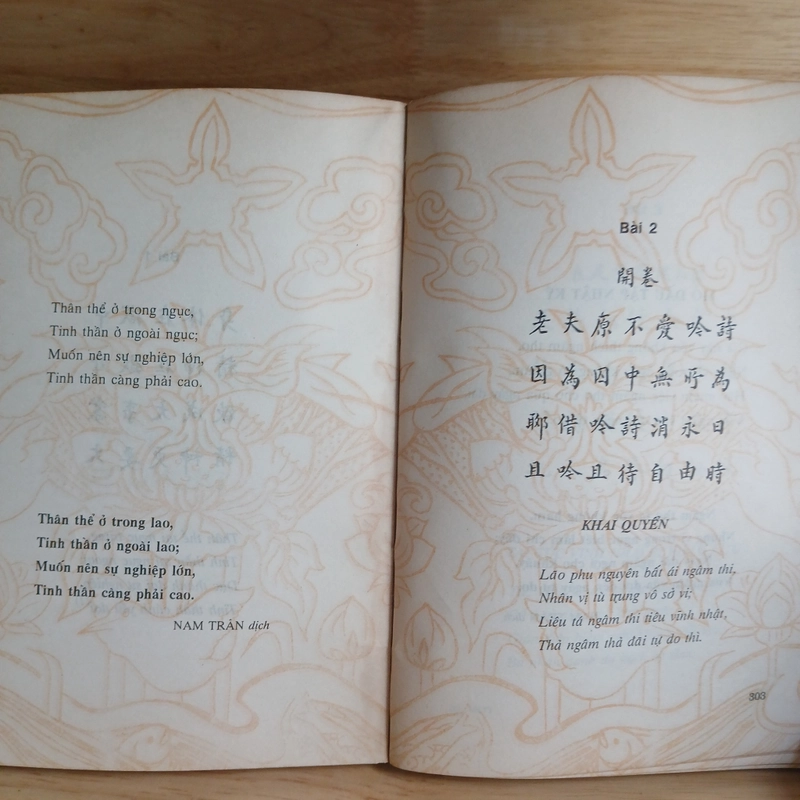 Thân thể ở trong ngục,
Tinh thần ở ngoài ngục;
Muốn nên sự nghiệp lớn,
Tinh thần càng phải cao.
Thân thể ở trong lao,
Tinh thần ở ngoài lao;
Muốn nên sự nghiệp lớn,
Tinh thần càng phải cao.
NAM TRÂN dịch
Bài 2
開卷
老夫原不愛吟詩
因為囚中無所為
聊借吟詩消永日
且吟且待自由時
KHAI QUYỂN
Lão phu nguyên bất ái ngâm thi,
Nhân vị tù trung vô sở vi;
Liêu tá ngâm thi tiêu vĩnh nhật,
Thả ngâm thả đãi tự do thì.
303